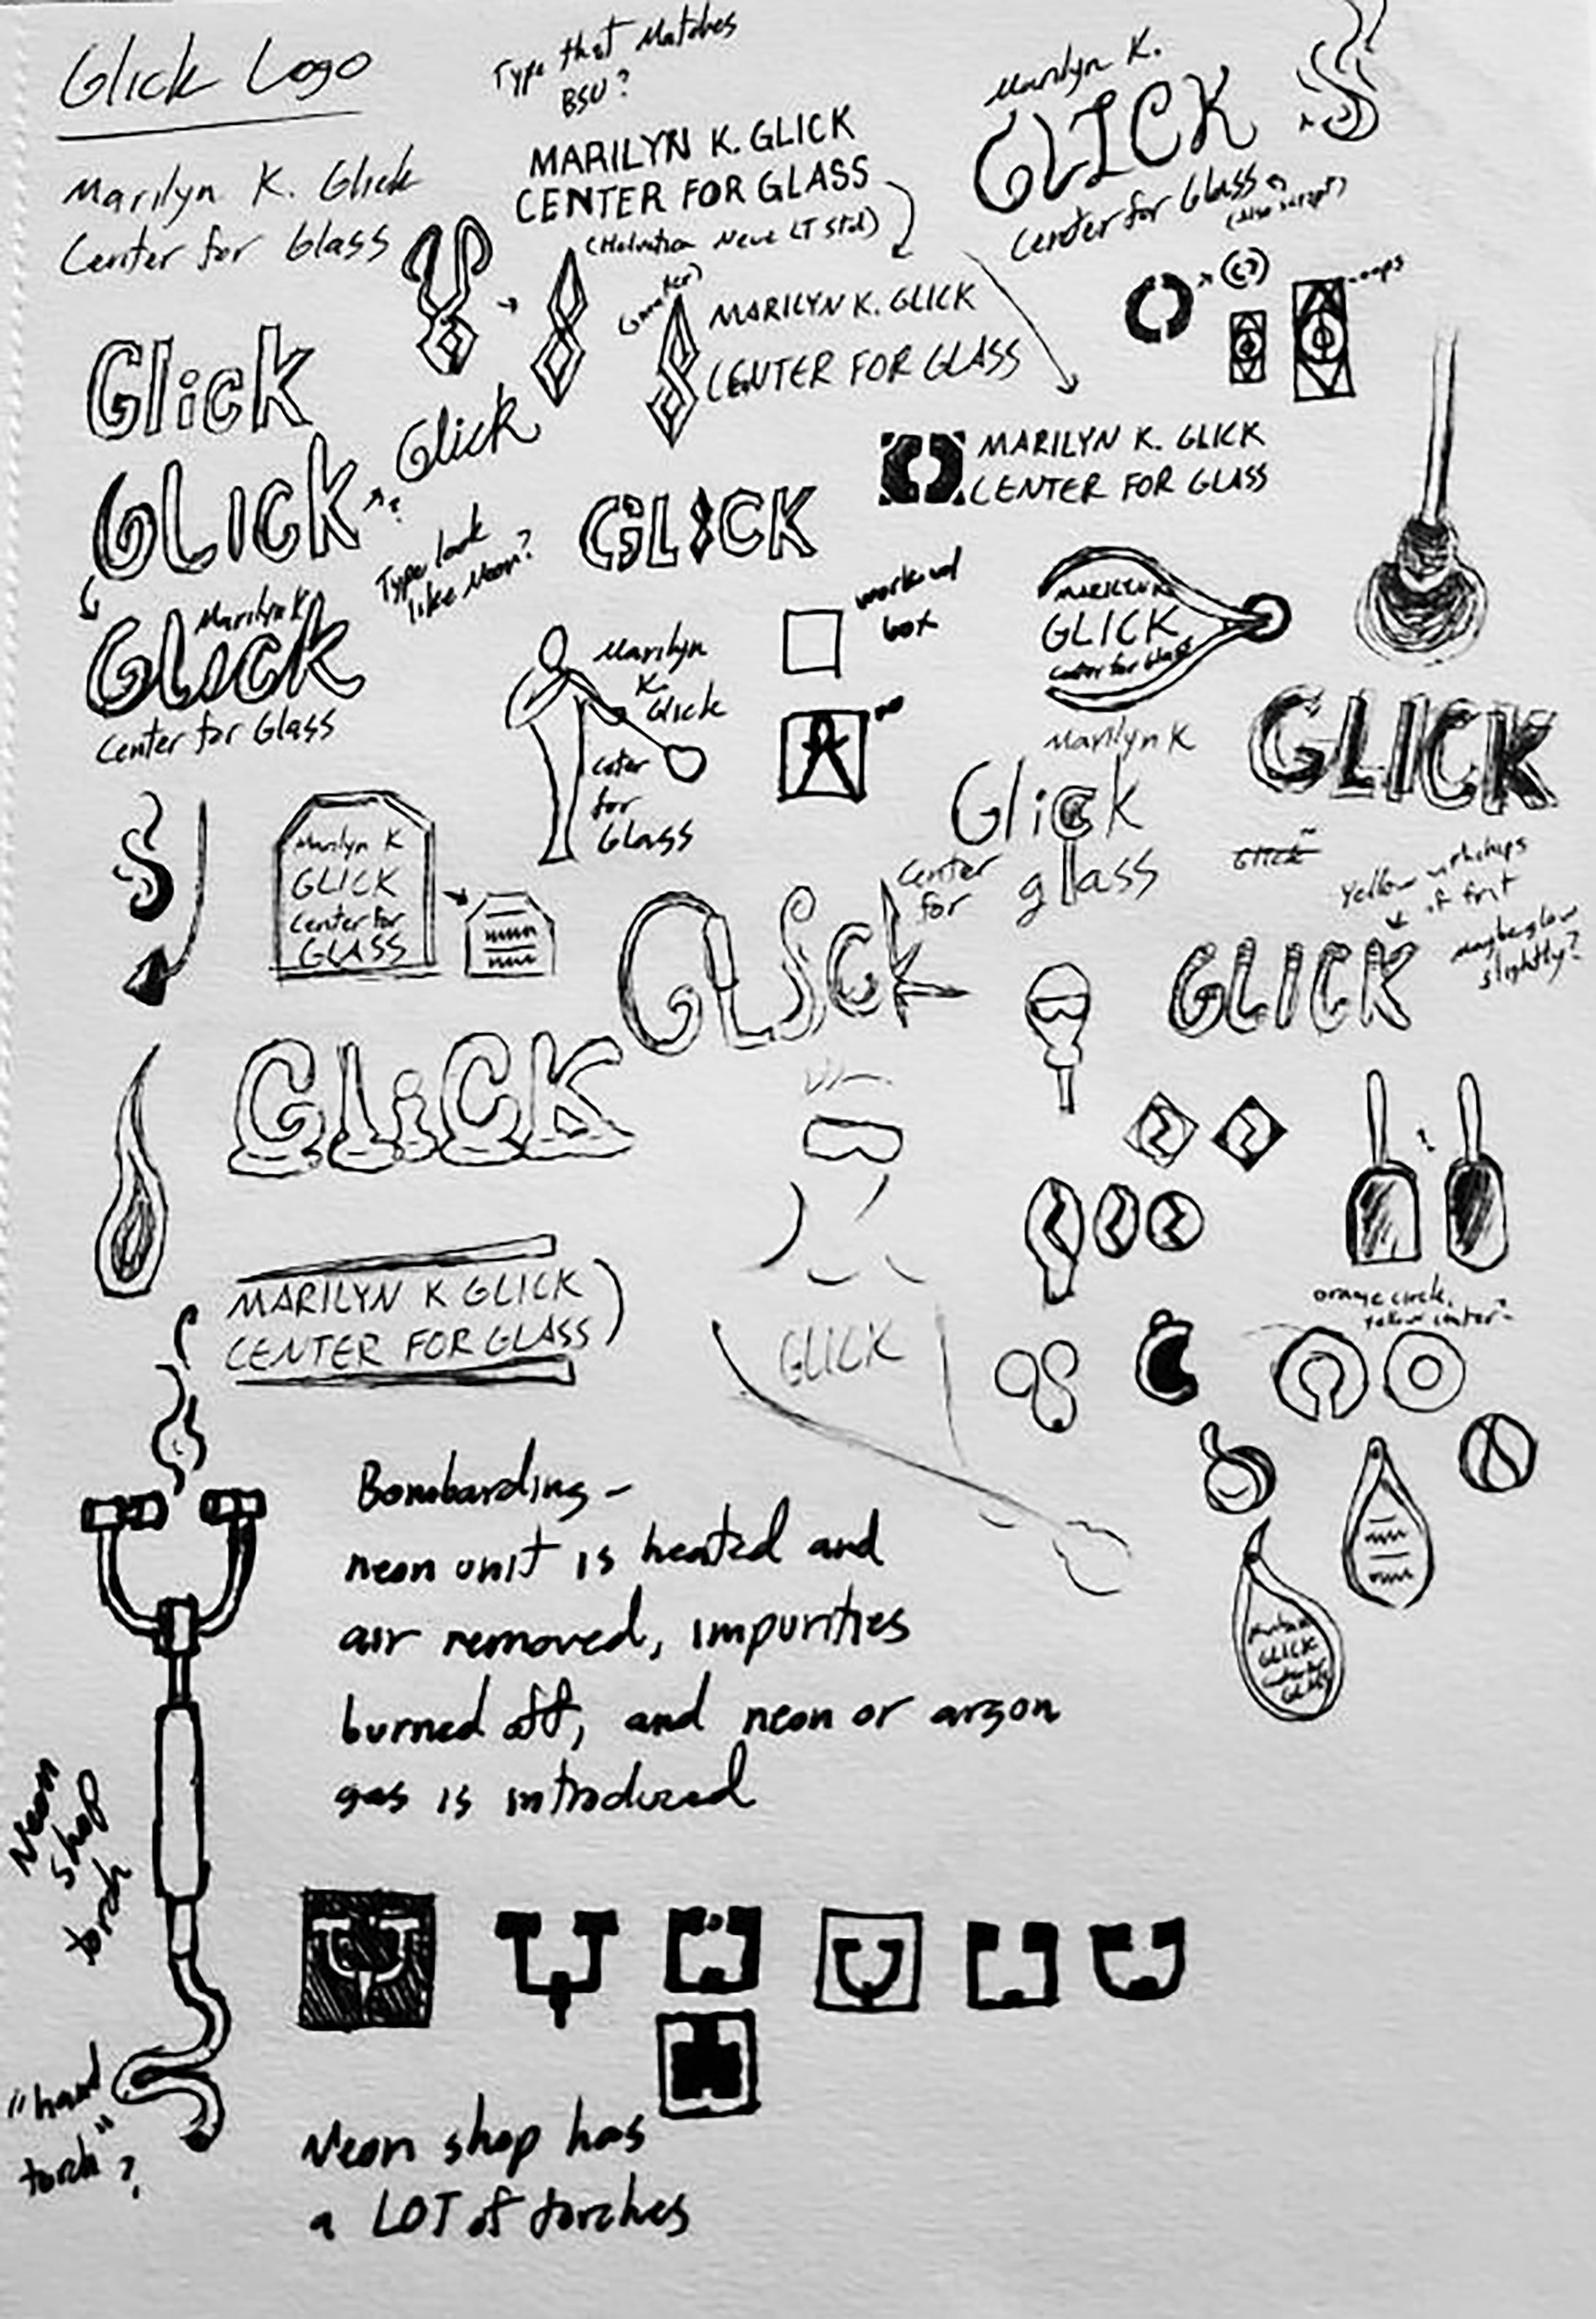 Glick Logo
Type that Matches
BSU?
Marilyn K. Glick
Center for Glass
MARILYN K. GLICK
CENTER FOR GLASS
(Helvetica Neue LT Std)
Marilyn K.
GLICK
Center for Glass
MARILYN K. GLICK
CENTER FOR GLASS
oops
Glick
Glick
GLICK
Type look
like Neon?
GLICK
MARILYN K. GLICK
CENTER FOR GLASS
Marilyn K
Glick
Center for Glass
Marilyn
K.
Glick
for
Glass
box
no
MARILYN K.
GLICK
Center for Glass
GLICK
Marilyn K
Glick
Center
for
glass
Glick
Yellow
of frit
maybe glow
slightly?
GLICK
Marilyn K
GLICK
Center for
GLASS
GLICK
GLICK
MARILYN K GLICK
CENTER FOR GLASS
GLICK
orange circle,
yellow center?
GLICK
Bombarding -
neon unit is heated and
air removed, impurities
burned off, and neon or argon
gas is introduced
Neon
shop
torch
"hand
torch"?
Neon shop has
a LOT of torches